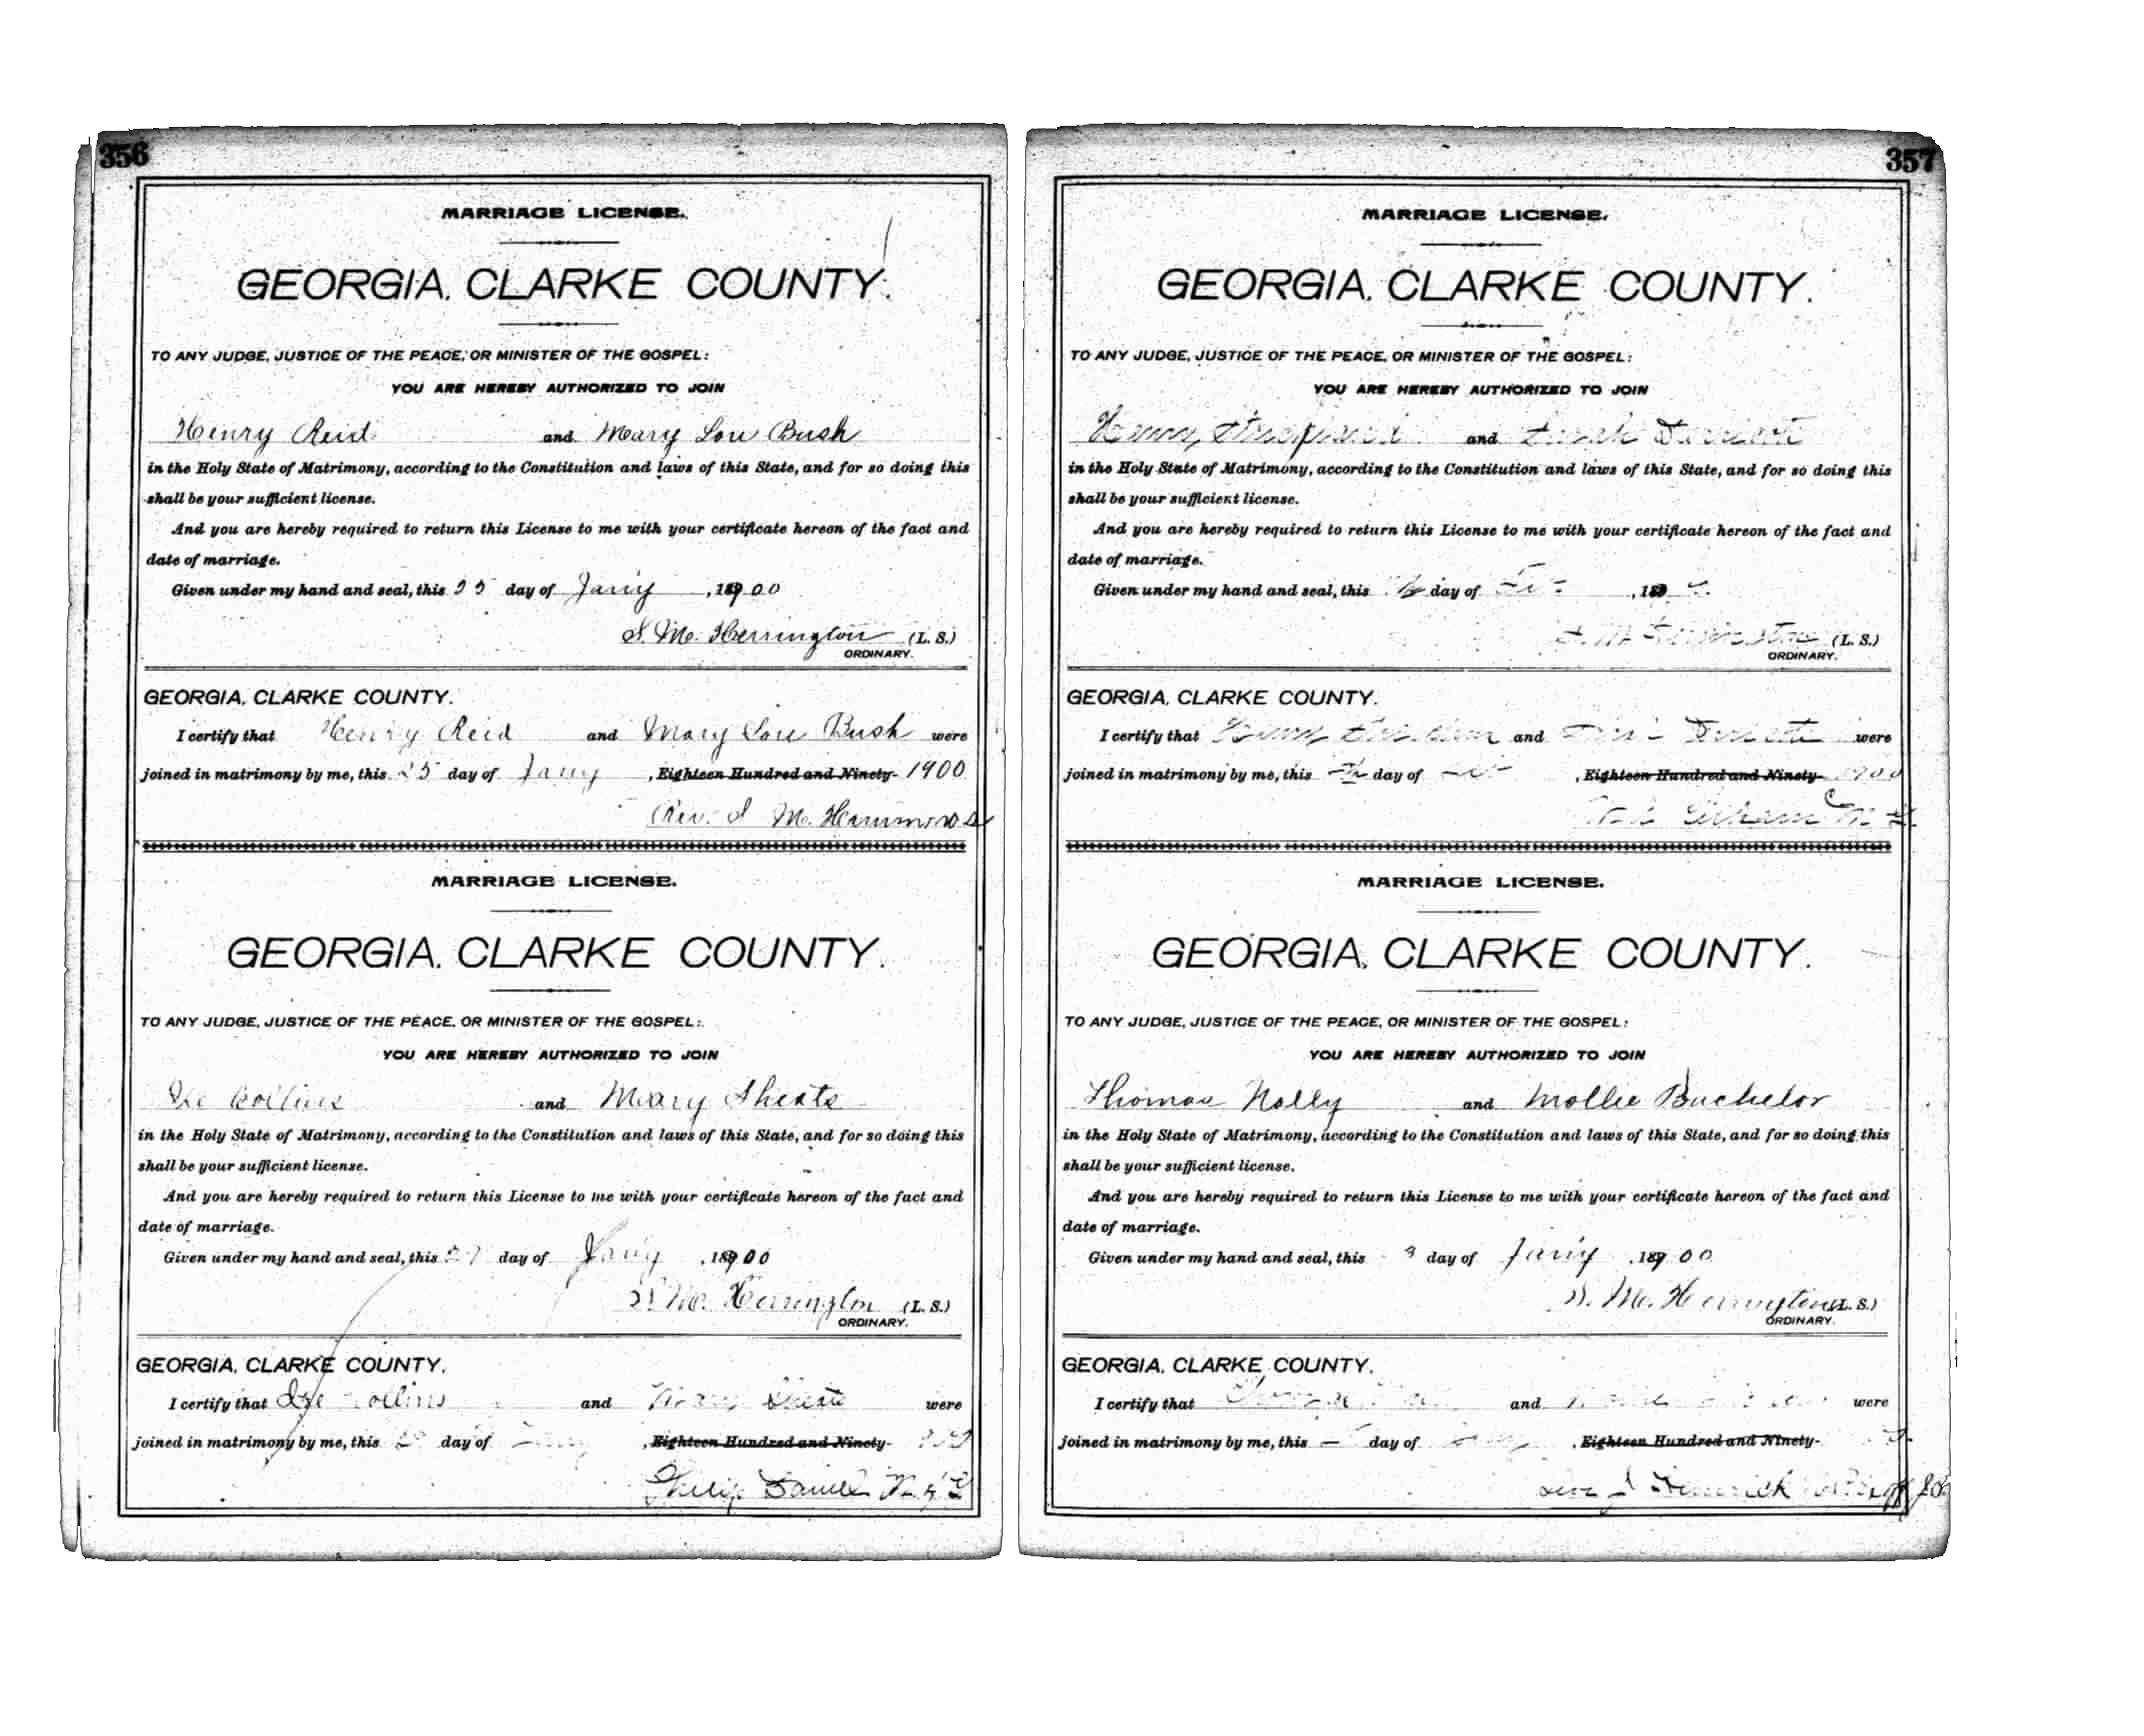 356
MARRIAGE LICENSE.
GEORGIA, CLARKE COUNTY.
TO ANY JUDGE, JUSTICE OF THE PEACE, OR MINISTER OF THE GOSPEL:
YOU ARE HEREBY AUTHORIZED TO JOIN
Henry Reid and Mary Lou Bush
in the Holy State of Matrimony, according to the Constitution and laws of this State, and for so doing this
shall be your sufficient license.
And you are hereby required to return this License to me with your certificate hereon of the fact and
date of marriage.
Given under my hand and seal, this 25 day of Jany , 1900
S. M. Herrington (L. S.)
ORDINARY.
GEORGIA, CLARKE COUNTY.
I certify that Henry Reid and Mary Lou Bush were
joined in matrimony by me, this 25 day of Jany , Eighteen Hundred and Ninety- 1900
Rev. M.
MARRIAGE LICENSE.
GEORGIA, CLARKE COUNTY.
TO ANY JUDGE, JUSTICE OF THE PEACE, OR MINISTER OF THE GOSPEL:
YOU ARE HEREBY AUTHORIZED TO JOIN
Collins and Mary Sheats
in the Holy State of Matrimony, according to the Constitution and laws of this State, and for so doing this
shall be your sufficient license.
And you are hereby required to return this License to me with your certificate hereon of the fact and
date of marriage.
Given under my hand and seal, this 27 day of Jany , 1900
S. M. Herrington (L. S.)
ORDINARY.
GEORGIA, CLARKE COUNTY.
I certify that Collins and Mary Sheats were
joined in matrimony by me, this day of Jany , Eighteen Hundred and Ninety-
Philip Daniel
357
MARRIAGE LICENSE.
GEORGIA, CLARKE COUNTY.
TO ANY JUDGE, JUSTICE OF THE PEACE, OR MINISTER OF THE GOSPEL:
YOU ARE HEREBY AUTHORIZED TO JOIN
Henry and Sarah
in the Holy State of Matrimony, according to the Constitution and laws of this State, and for so doing this
shall be your sufficient license.
And you are hereby required to return this License to me with your certificate hereon of the fact and
date of marriage.
Given under my hand and seal, this day of , 18
S. M. Herrington (L. S.)
ORDINARY.
GEORGIA, CLARKE COUNTY.
I certify that Henry and were
joined in matrimony by me, this day of , Eighteen Hundred and Ninety- 1900
MARRIAGE LICENSE.
GEORGIA, CLARKE COUNTY.
TO ANY JUDGE, JUSTICE OF THE PEACE, OR MINISTER OF THE GOSPEL:
YOU ARE HEREBY AUTHORIZED TO JOIN
Thomas Nolly and Mollie Buchelor
in the Holy State of Matrimony, according to the Constitution and laws of this State, and for so doing this
shall be your sufficient license.
And you are hereby required to return this License to me with your certificate hereon of the fact and
date of marriage.
Given under my hand and seal, this 3 day of Jany , 1900
S. M. Herrington (L. S.)
ORDINARY.
GEORGIA, CLARKE COUNTY.
I certify that and were
joined in matrimony by me, this day of , Eighteen Hundred and Ninety-